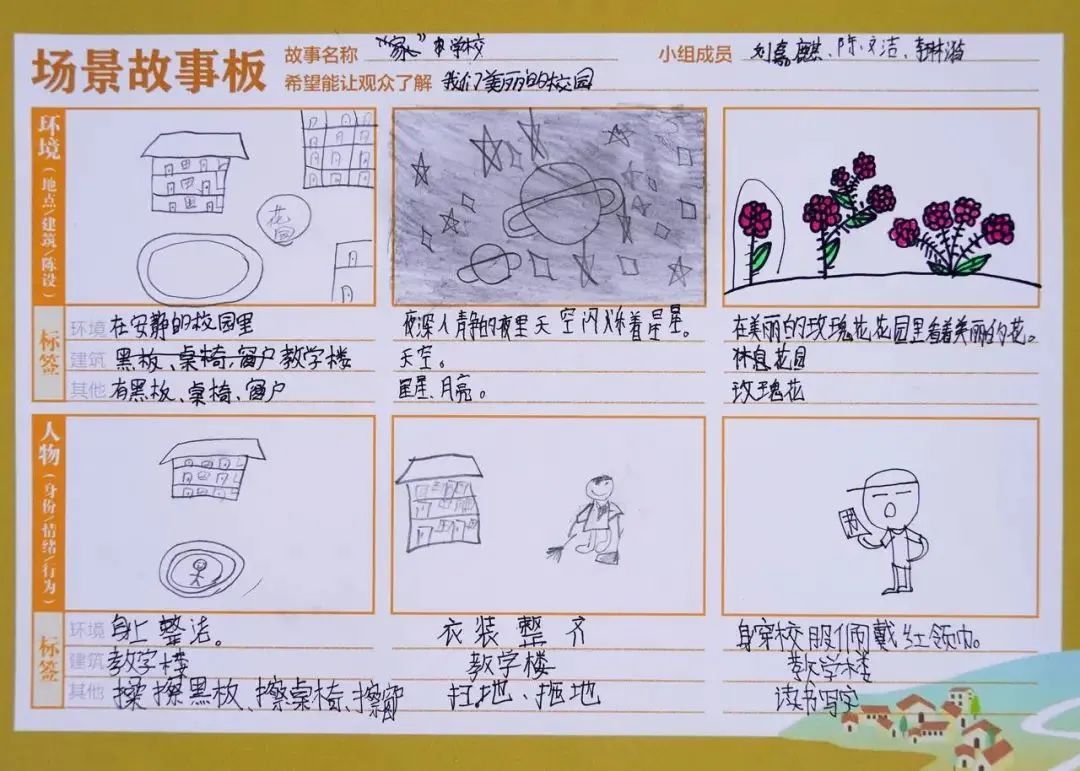 场景故事板
故事名称 "家"中学校
小组成员 刘嘉麒、陈文洁、
希望能让观众了解 我们美丽的校园
环境(地点/建筑/陈设)
花园
标签
环境 在安静的校园里
建筑 黑板、桌椅,窗户教学楼
其他 有黑板、桌椅、窗户
夜深人青静的夜里天空闪烁着星星。
天空。
星星、月亮。
在美丽的玫瑰花花园里看着美丽的花。
休息花园
玫瑰花
人物(身份/情绪/行为)
标签
环境 身上整洁。
建筑 教学楼
其他 擦黑板、擦桌椅、擦窗
衣装整齐
教学楼
扫地、拖地
身穿校服佩戴红领巾。
教学楼
读书写字